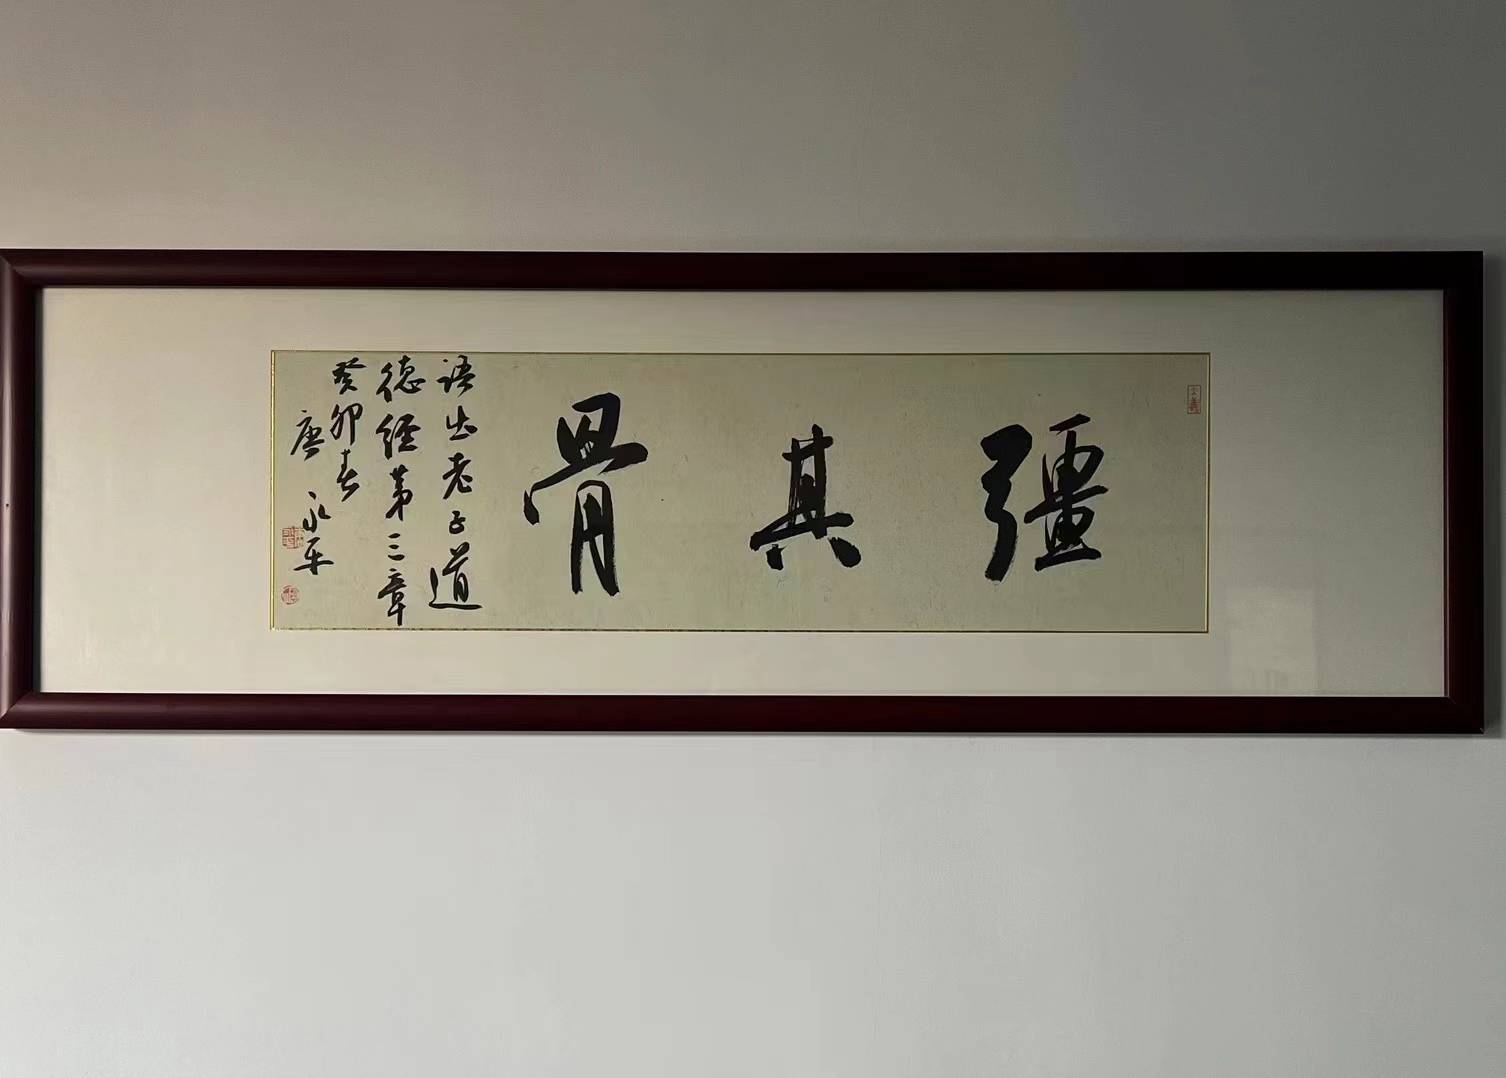 彊其骨
语出老子道
德经第三章
癸卯春
唐永平